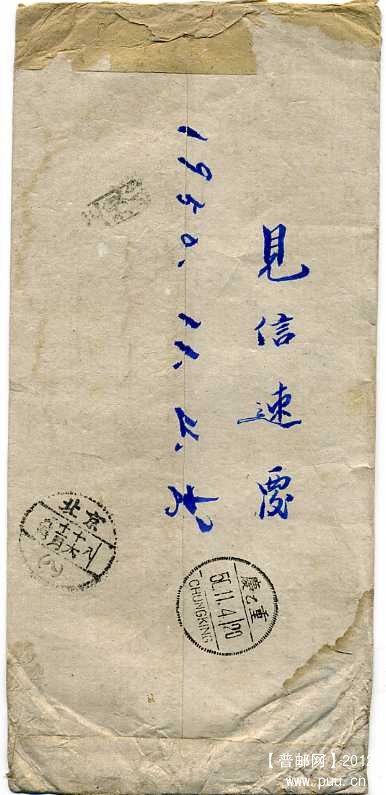 見信速覆
1950. 11. 4.
慶乙重
50.11.4/20
CHUNGKING
北京
【普邮网】201
www.puu.cn